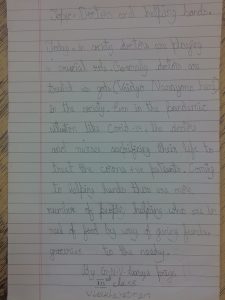 Topic: Doctors and helping hands.
Today in society doctors are playing
a crucial role. Generally doctors are
treated as gods (Vaidyo Narayano hari)
in the society. Even in the pandamic
situation like Covid-19. the doctors
and nurses sacrificing their life to
treat the corona +ve patients. Coming
to helping hands there are more
number of people helping who are in
need of food by way of giving funds,
groceries to the needy.
By
class